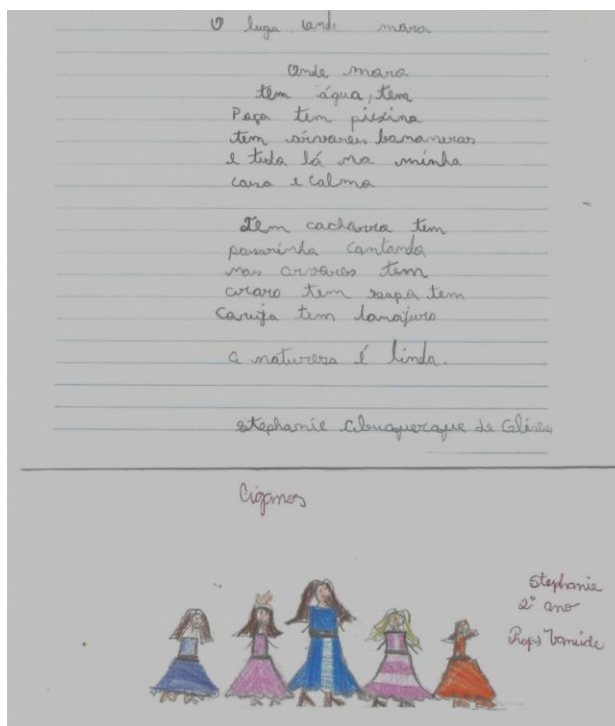 O luga onde mora
Onde mora
tem água, tem
Poço tem piscina
tem árvores bananeras
e tudo lá na minha
casa e calma
Tem cachorra tem
pasarinho cantando
nas arvores tem
tem sapo tem
Coruja tem
a naturesa é linda.
Stephanie Albuquerque de
Ciganos
Stephanie
2º ano